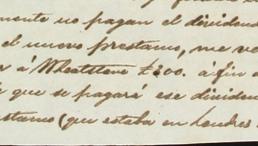 mente no pagan el dividend
el nuevo prestamo, me ve
á Wheatstone £300. á fin
que se pagará ese dividen
stamo (que estaba en Londres